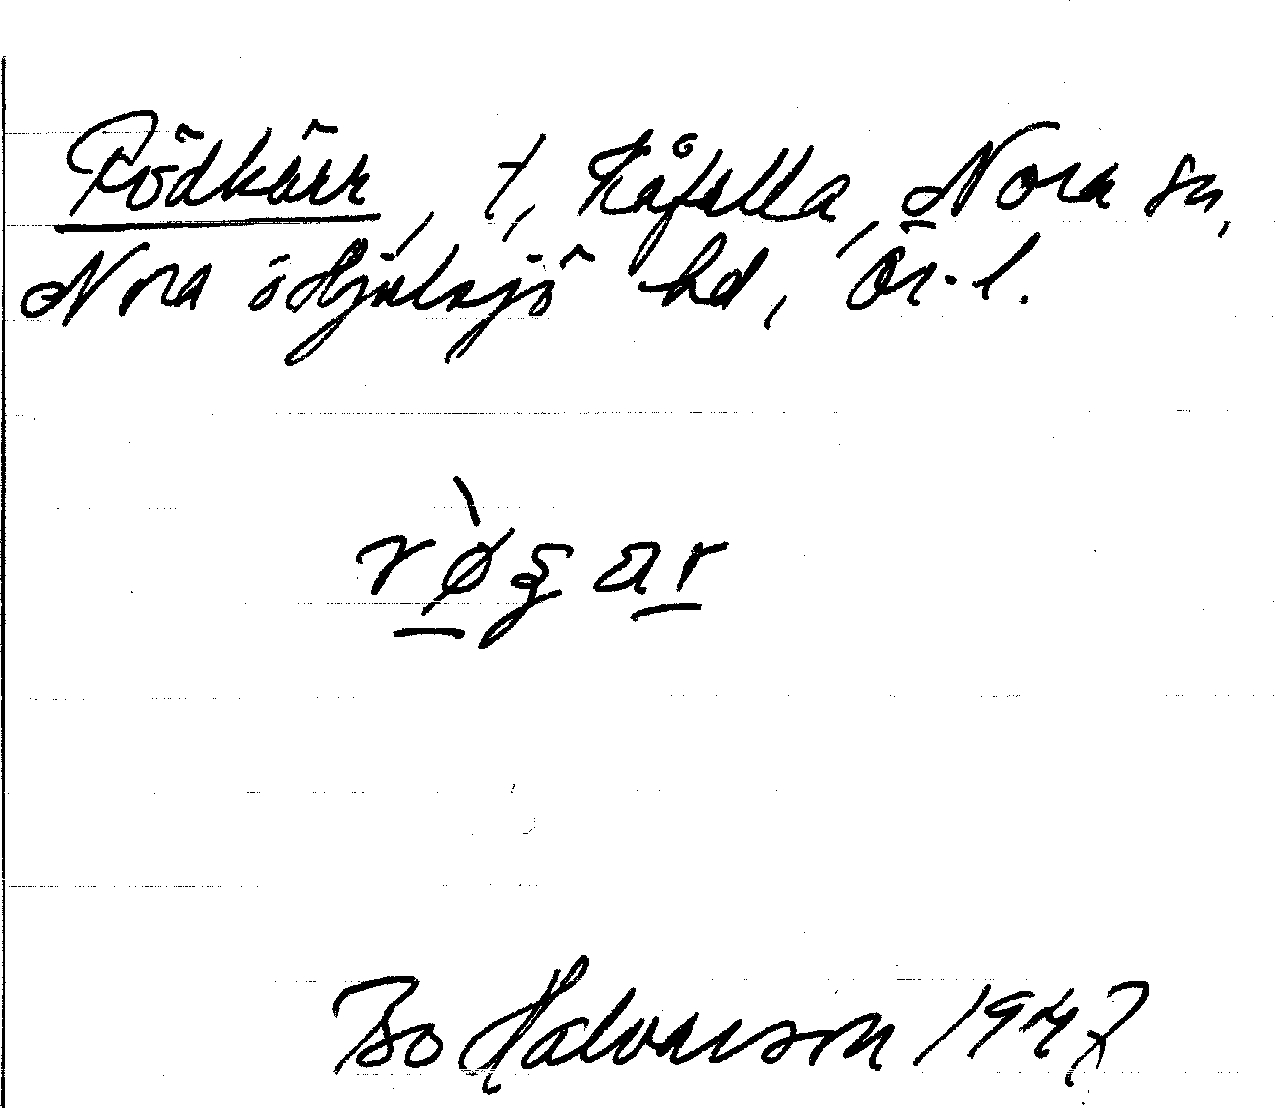 Rödkärr, t, Kåfalla, Nora sn,
Nora o Hjulsjö hd, Ör. l.
Bo Halvarson 1947